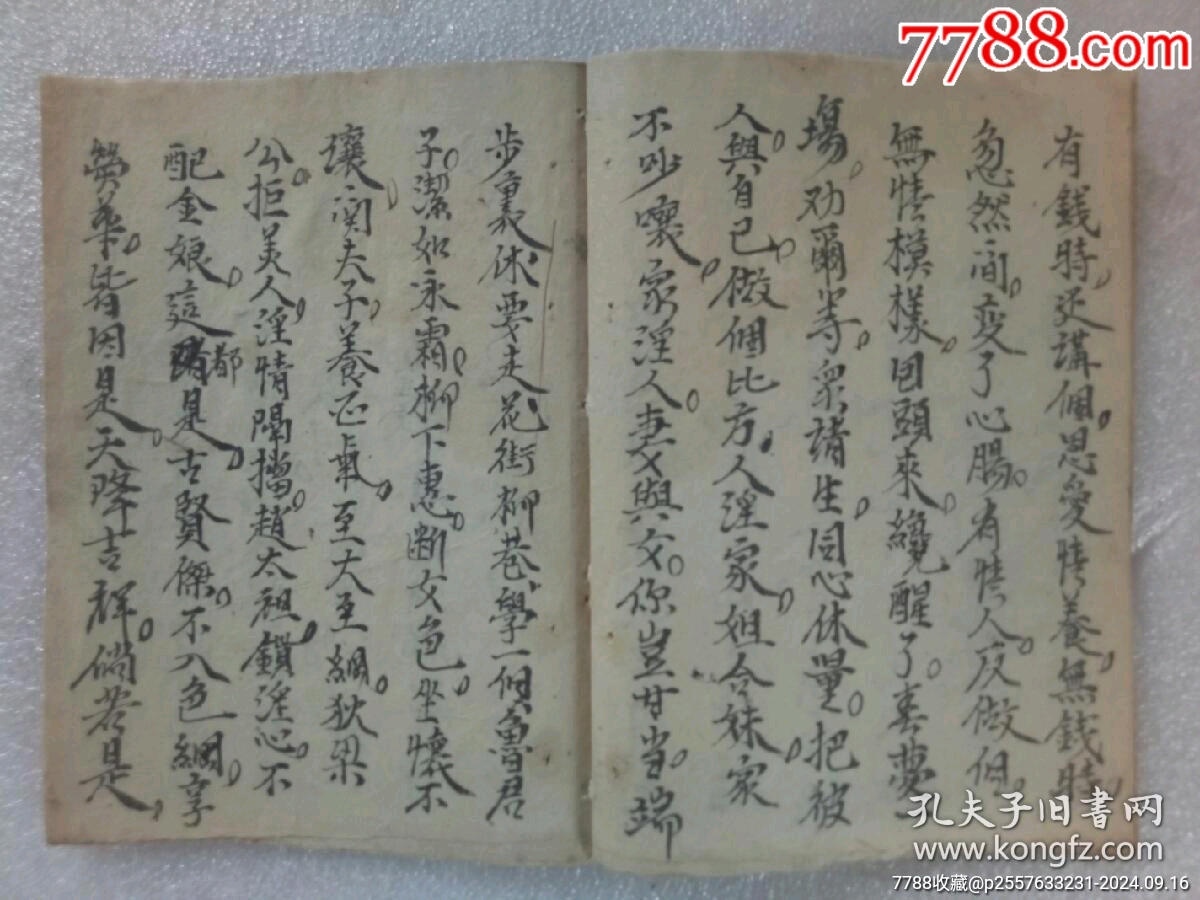 有錢時。更講個。思愛情養。無錢時。
忽然间。变了心腸。有情人。反做個。
無情模樣。回頭來。纔醒了。春夢一
場。劝爾等。衆諸生。同心休量。把彼
人。與自己。做個比方。人淫家。姐合妹。家
不吵嚷。家淫人。妻與女。你豈甘当。端
步裏。休要走。花街柳巷。學一個。魯君
子。潔如氷霜。柳下惠。断女色。坐懷不
壤。関夫子。養正氣。至大至綱。狄梁
公。拒美人。淫情閗擋。趙太祖。鎖淫心。不
配金娘。這都是。古賢傑。不入色綱。享
榮華。皆因是。天降吉祥。倘若是。
7788.com
孔夫子旧書网
www.kongfz.com
7788收藏@p2557633231-2024.09.16